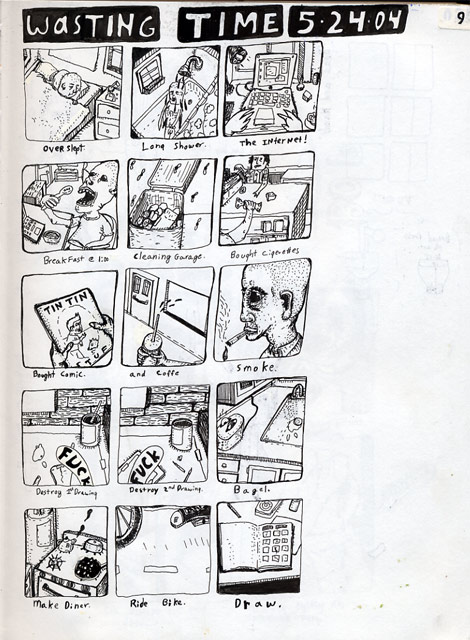 WASTING TIME 5·24·04
9
Over Slept.
Long Shower.
The INterNet!
BreakFast @ 1:00
Cleaning Garage.
Bought Cigerettes
TIN TIN
Bought Comic.
and Coffe
Smoke.
FUCK
FUCK
Destroy 1st Drawing
Destroy 2nd Drawing.
Bagel.
Make Diner.
Ride Bike.
Draw.